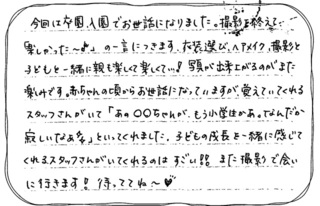 今回は卒園、入園でお世話になりました。撮影を終えて…
楽しかった〜♪」の一言につきます。衣装選び、ヘアメイク、撮影と
子どもと一緒に親も楽しくて楽しくて…!写真が出来上がるのがまた
楽しみです。赤ちゃんの頃からお世話になっていますが、覚えていてくれる
スタッフさんがいて「あの○○ちゃんが、もう小学生かぁ。なんだか
寂しいなぁ。」といってくれました。子どもの成長を一緒に感じて
くれるスタッフさんがいてくれるのは すごい!! また撮影で会い
に行きます! 待っててね〜♡